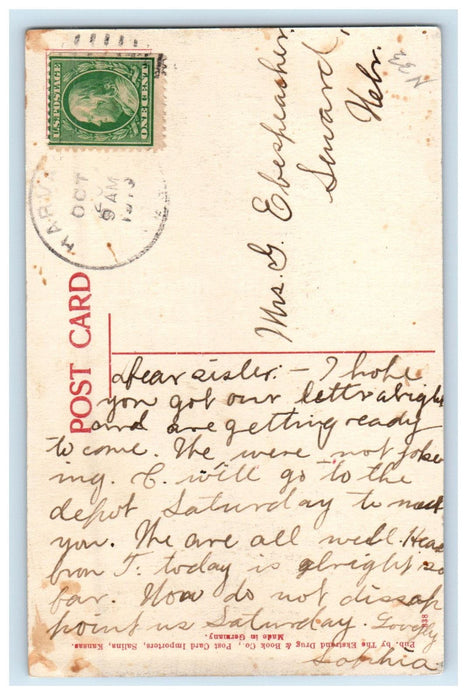 U.S. POSTAGE
ONE CENT
HARV
OCT
9 AM
1913
POST CARD
Mrs. G. Ebespeacher,
Seward,
Nebr.
Dear sister: – I hope
you got our letter alright
and are getting ready
to come. We were not joke
ing. C. will go to the
depot Saturday to meet
you. We are all well.
from T. today is alright so
far. Now do not dissap
point us Saturday. Goodby
Sophia
Pub. by The Ekstrand Drug & Book Co., Post Card Importers, Salina, Kansas.
Made in Germany.